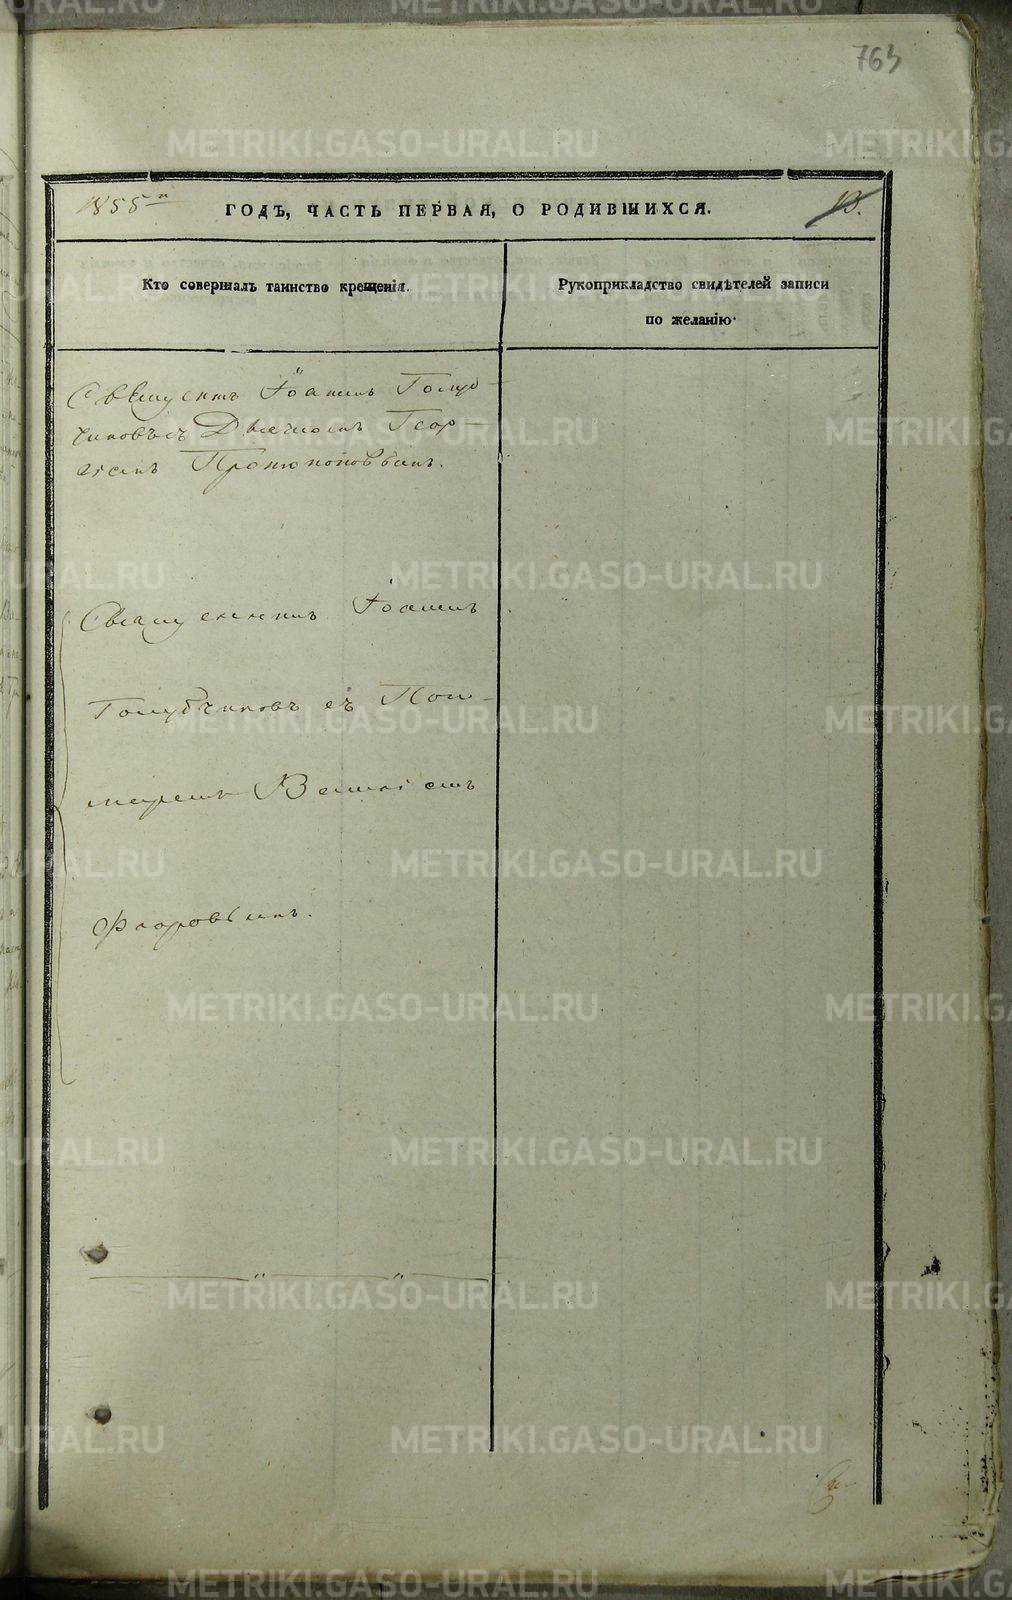 763
1855й
ГОДЪ, ЧАСТЬ ПЕРВАЯ, О РОДИВШИХСЯ.
13.
Кто совершалъ таинство крещенія.
Рукоприкладство свидѣтелей записи
по желанію.
Священникъ Іоаннъ Голуб-
чиковъ съ Дьячкомъ Геор-
гіемъ Протопоповымъ.
Священникъ Іоаннъ
Голубчиковъ съ Поно-
маремъ Василіемъ
Флоровымъ.
METRIKI.GASO-URAL.RU